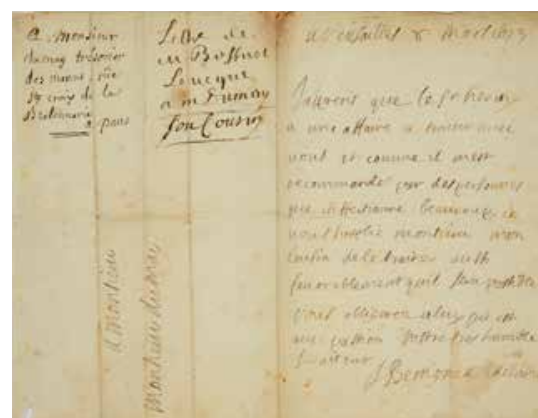 a monsieur
dumay trésorier
des mons rüe
Ste croix de la
Bretonnerie
a paris
Lettre de
mr Bossuet
Evecque
a mr Dumay
son Cousin
a monsieur
monsieur dumay
a versailles 8 mars
Japprens que le sr
a une affaire a traiter avec
vous et comme il mest
recommandé par des personnes
que jaffectionne beaucoup je
vous supplie monsieur mon
cousin de le traiter aussi
favorablement quil sera possible
vous obligerez celuy qui est
avec passion vostre tres humble
serviteur
J Benigne